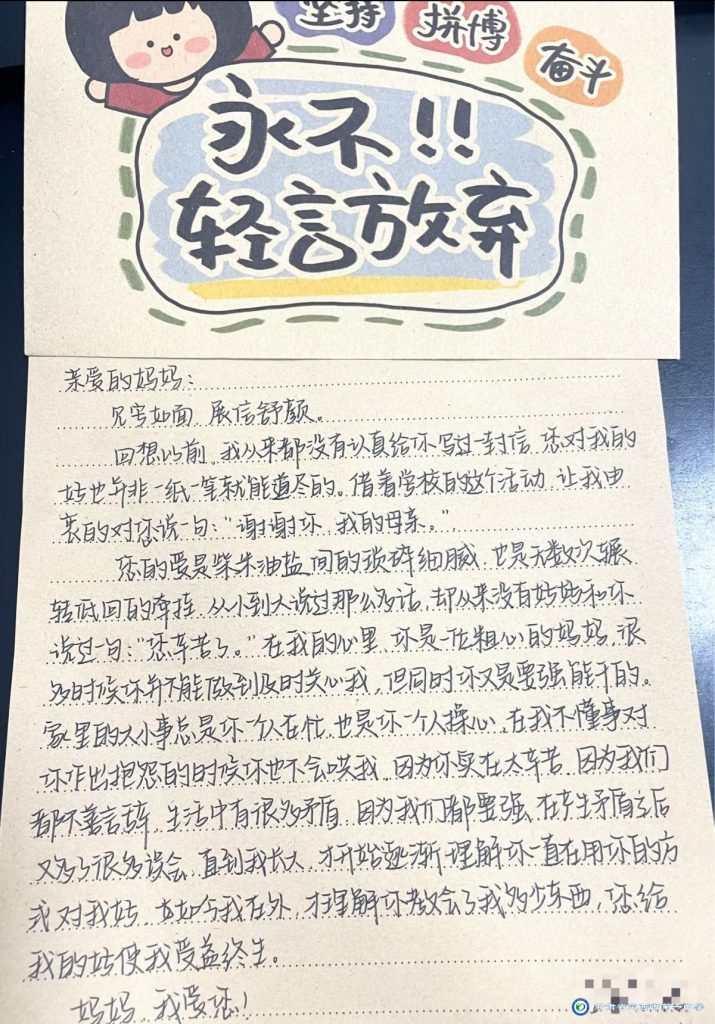 坚持 拼搏 奋斗
永不!!
轻言放弃
亲爱的妈妈:
见字如面,展信舒颜。
回想以前,我从来都没有认真给你写过一封信,您对我的
好也并非一纸一笔就能道尽的。借着学校的这个活动,让我由
衷的对您说一句:“谢谢你,我的母亲。”
您的爱是柴米油盐间的琐碎细腻,也是无数次辗
转低回的牵挂,从小到大说过那么多话,却从来没有好好和你
说过一句:“您辛苦了。”在我的心里,你是一位粗心的妈妈,很
多时候你并不能做到及时关心我,但同时你又是要强能干的。
家里的大小事总是你一个人在忙,也是你一个人操心,在我不懂事对
你作出抱怨的时候你也不会哄我,因为你实在太辛苦,因为我们
都不善言辞,生活中有很多矛盾,因为我们都要强,在产生矛盾之后
又多了很多误会,直到我长大,才开始逐渐理解你一直在用你的方
式对我好,如今我在外,才理解你教会了我多少东西,您给
我的好使我受益终生。
妈妈,我爱您!